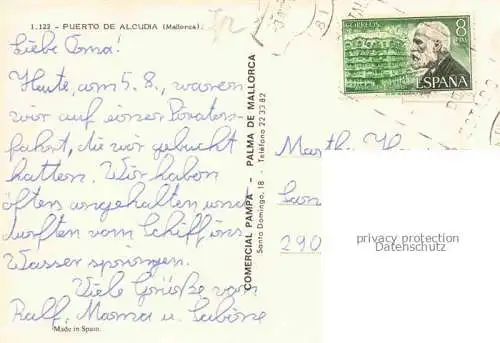 1.123 - PUERTO DE ALCUDIA (Mallorca).
Liebe Oma!
Heute, am 5.8., waren
wir auf einer Piraten-
fahrt, die wir gebucht
hatten. Wir haben
öfters angehalten und
durften vom Schiff ins
Wasser springen.
Viele Grüße von
Ralf, Mama u. Sabine
Made in Spain.
COMERCIAL PAMPA - PALMA DE MALLORCA
Santo Domingo, 18 - Teléfono 22 33 82
CORREOS
8
PTAS
ESPAÑA
Martha
290
privacy protection
Datenschutz